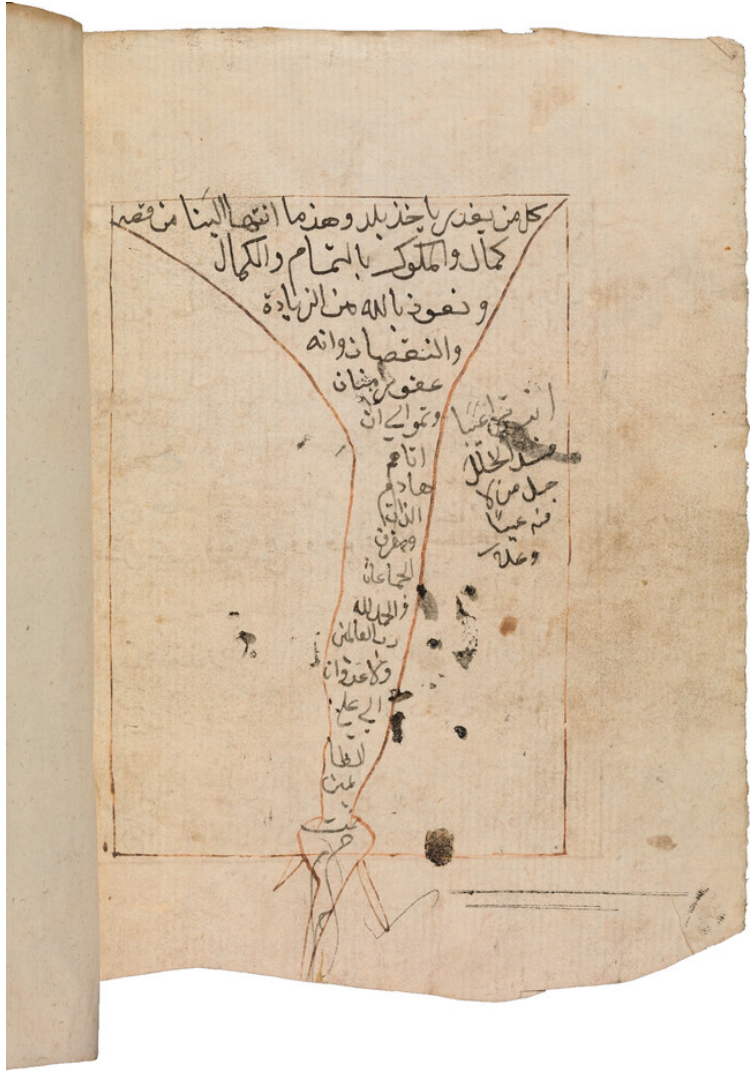 كل من يقدر ياخذ بلد وهذه ما انتها الينا من قصة
كمال والملوك بالتمام والكمال
ونعوذ بالله من الزيادة
والنقصان وانه
عفور منان
وتموالي ان
اتاهم
هادم
الذات
ومفرق
الجماعات
والحمد لله
رب العالمين
ولا عدوان
الي علي
الظا
لمين
تمت
عيبا
فسد الخلل
جل من لا
فيه عيبا
وعلا